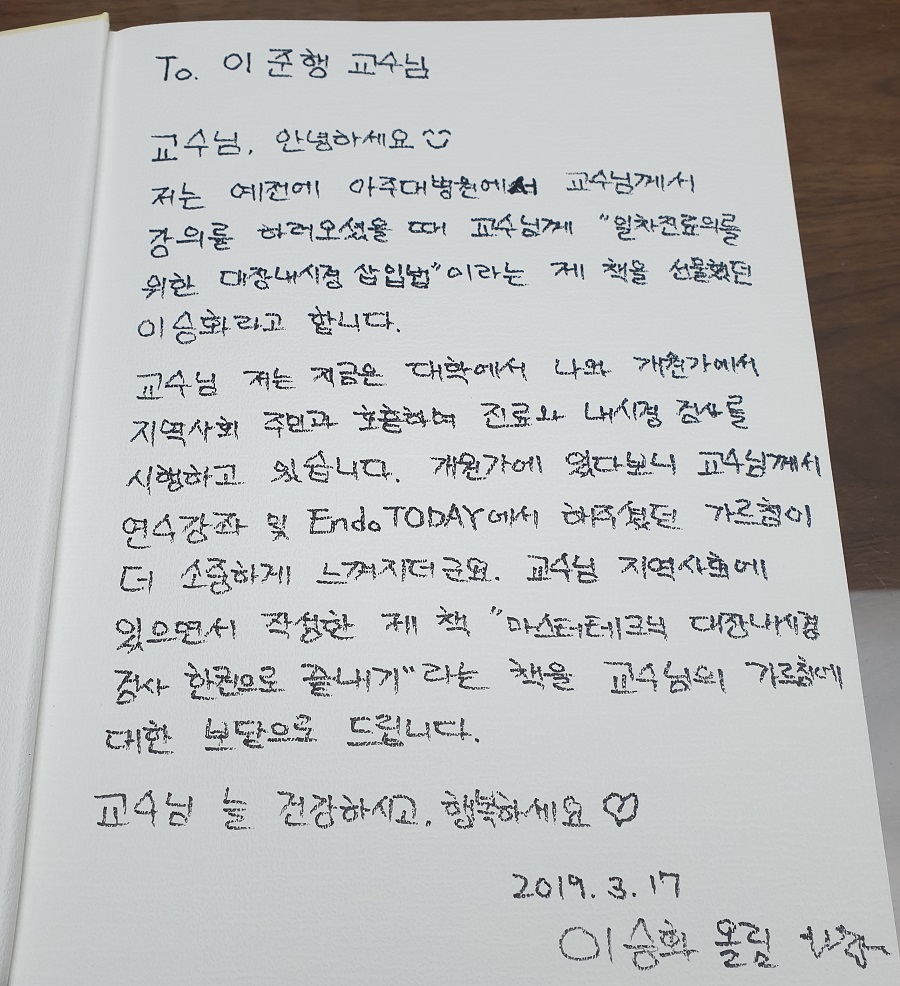 To. 이 준행 교수님
교수님, 안녕하세요
저는 예전에 아주대병원에서 교수님께서
강의를 하러오셨을 때 교수님께 "일차진료의를
위한 대장내시경 삽입법"이라는 제 책을 선물했던
이승화라고 합니다.
교수님 저는 지금은 대학에서 나와 개원가에서
지역사회 주민과 호흡하며 진료와 내시경 검사를
시행하고 있습니다. 개원가에 있다보니 교수님께서
연수강좌 및 EndoTODAY에서 해주셨던 가르침이
더 소중하게 느껴지더군요. 교수님 지역사회에
있으면서 작성한 제 책 "마스터테크닉 대장내시경
검사 한권으로 끝내기"라는 책을 교수님의 가르침에
대한 보답으로 드립니다.
교수님 늘 건강하시고, 행복하세요 ♡
2019. 3. 17
이승화 올림